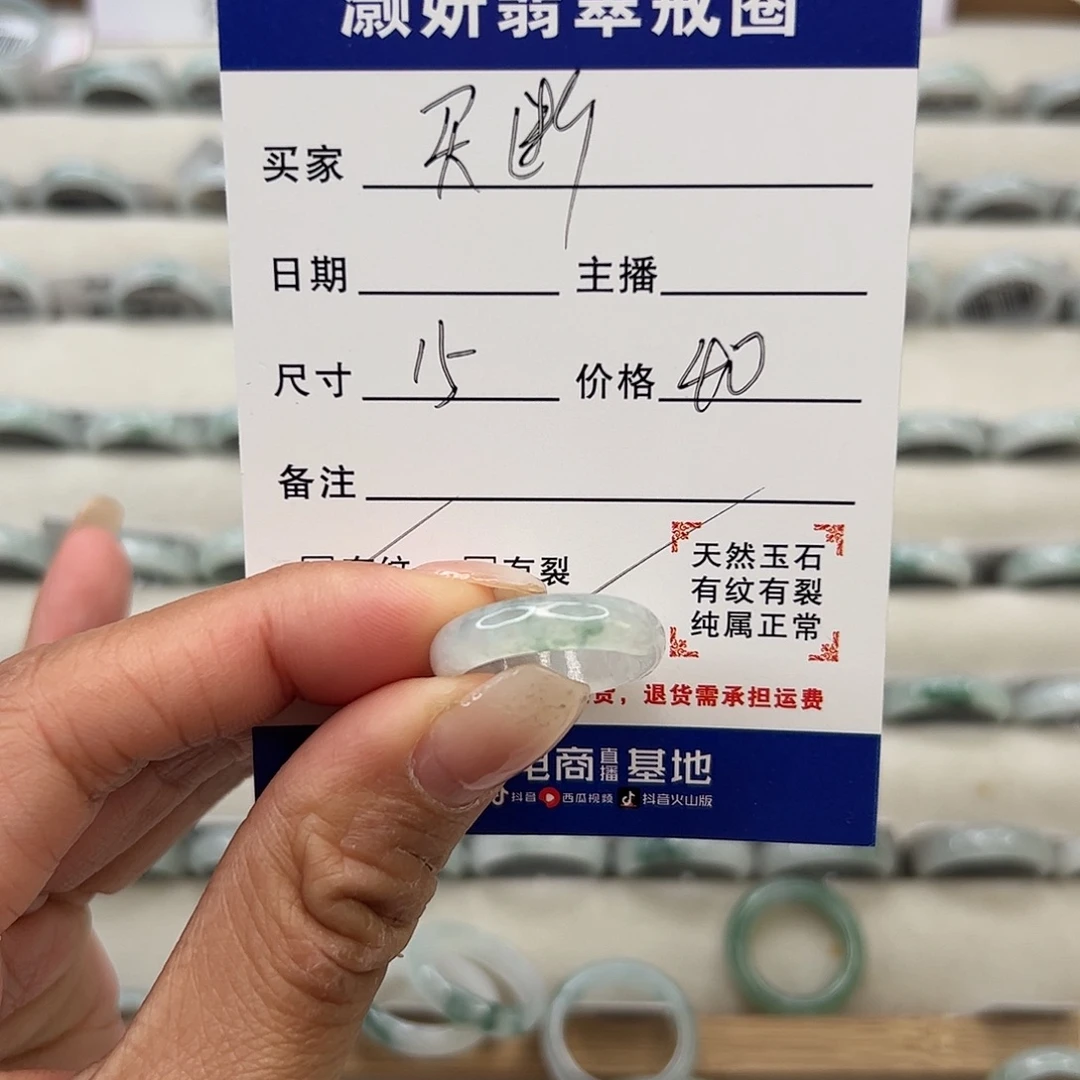 灏妍翡翠戒圈
买家 买断
日期 主播
尺寸 15 价格 40
备注
有纹 有裂
天然玉石
有纹有裂
纯属正常
货，退货需承担运费
电商直播基地
抖音 西瓜视频 抖音火山版